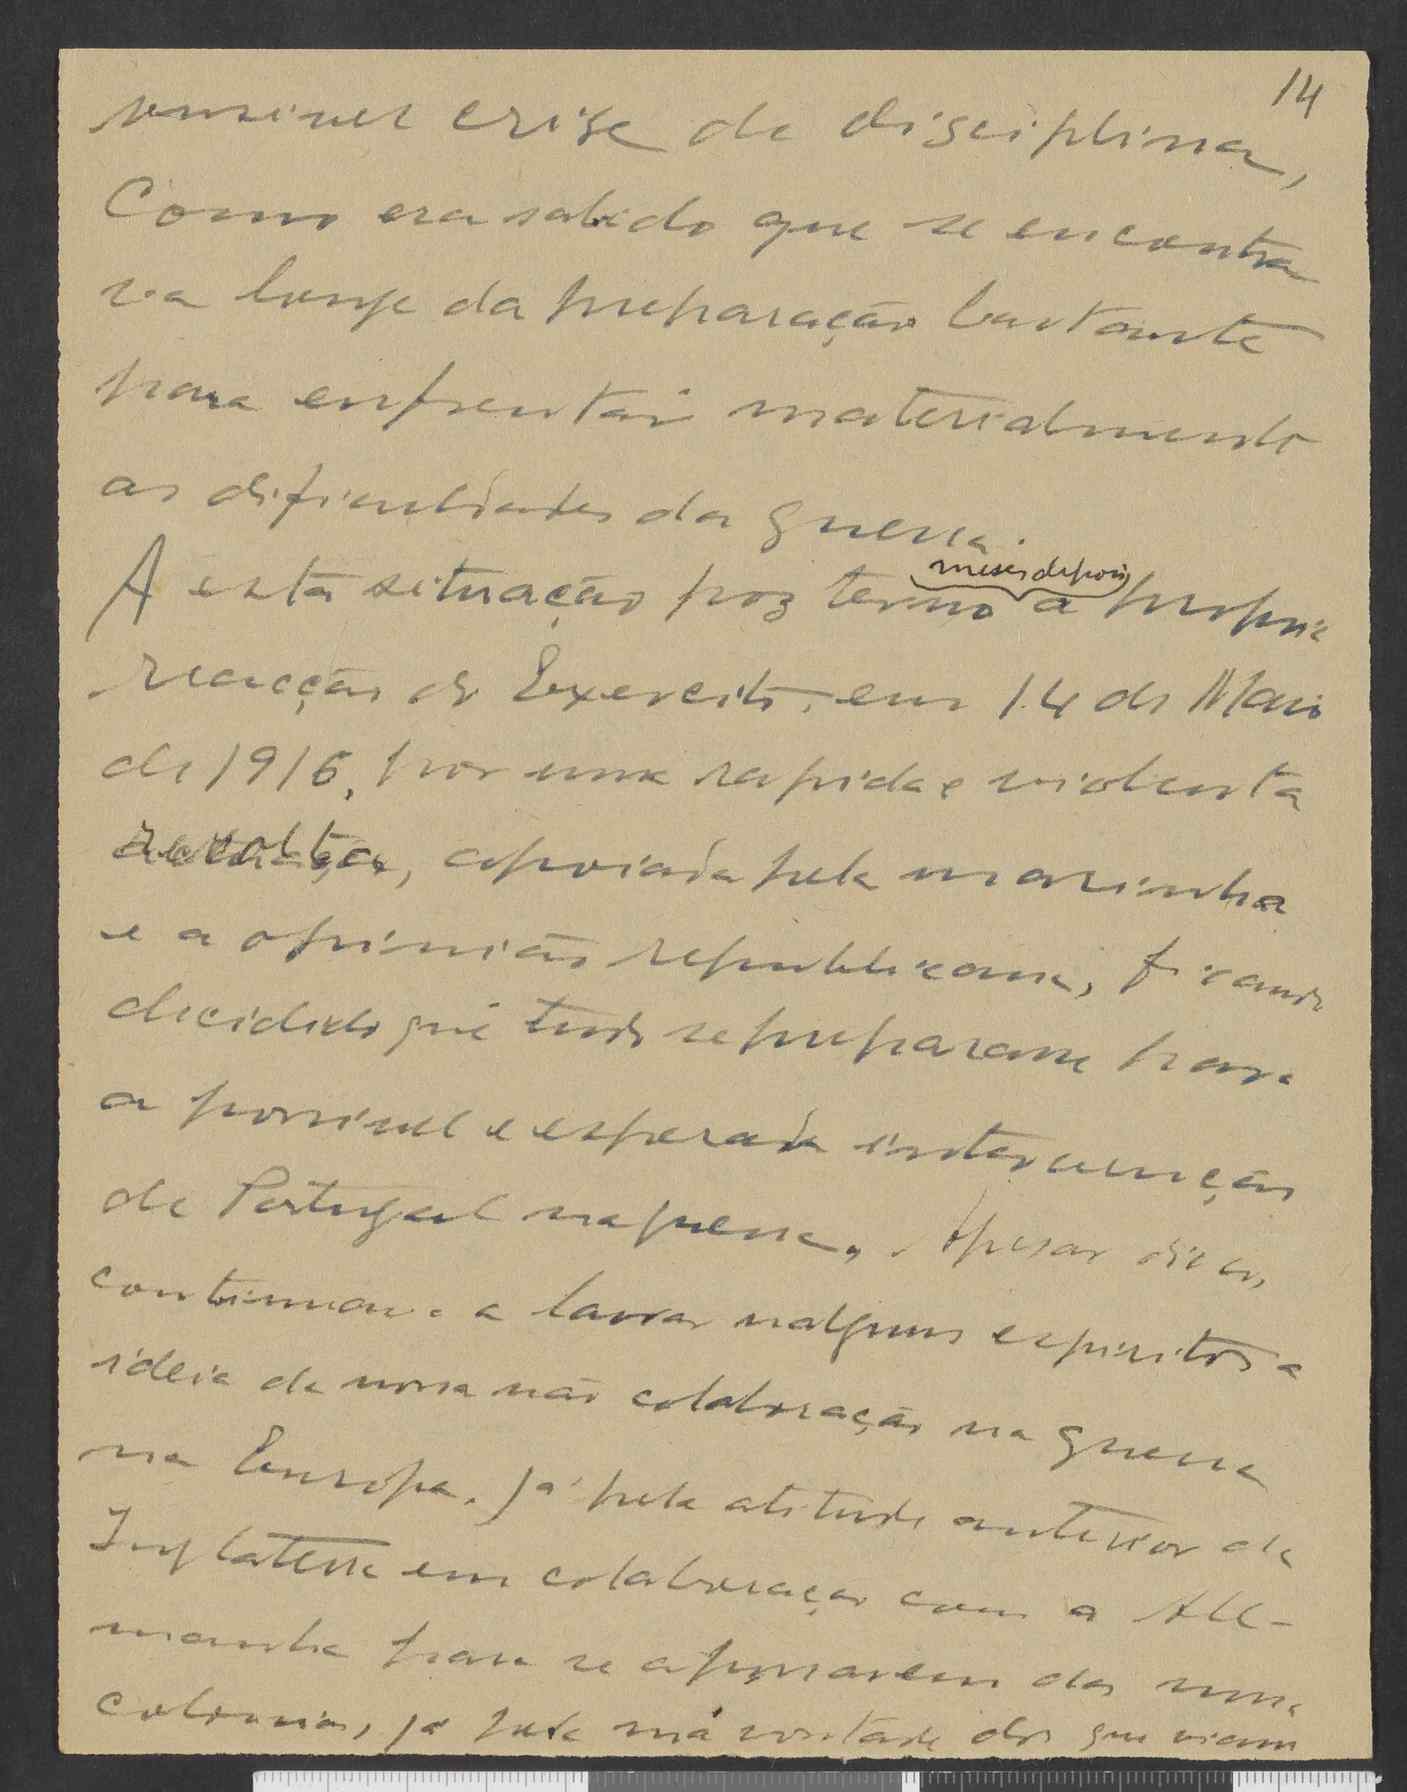 14
sensivel crise de disciplina,
Como era sabido que se encontra
va longe da preparação bastante
para enfrentar materialmente
as dificuldades da guerra.
meses depois
A esta situação poz termo a propria
reacção do Exercito, em 14 de Maio
de 1916, por uma rapida e violenta
revolta, apoiada pela marinha
e a opinião republicana, ficando
decidido que tudo se preparasse para
a possivel e esperada intervenção
de Portugal na guerra. Apesar disso,
continuava a lavrar nalguns espiritos a
ideia da nossa não colaboração na guerra
na Europa. já pela atitude anterior da
Inglaterra em colaboração com a Alle-
manha para se apossarem das nossas
colonias, já pela má vontade dos que viam